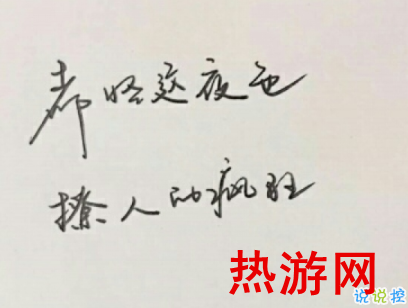 都怪这夜色
撩人的疯狂
热游网
说说控